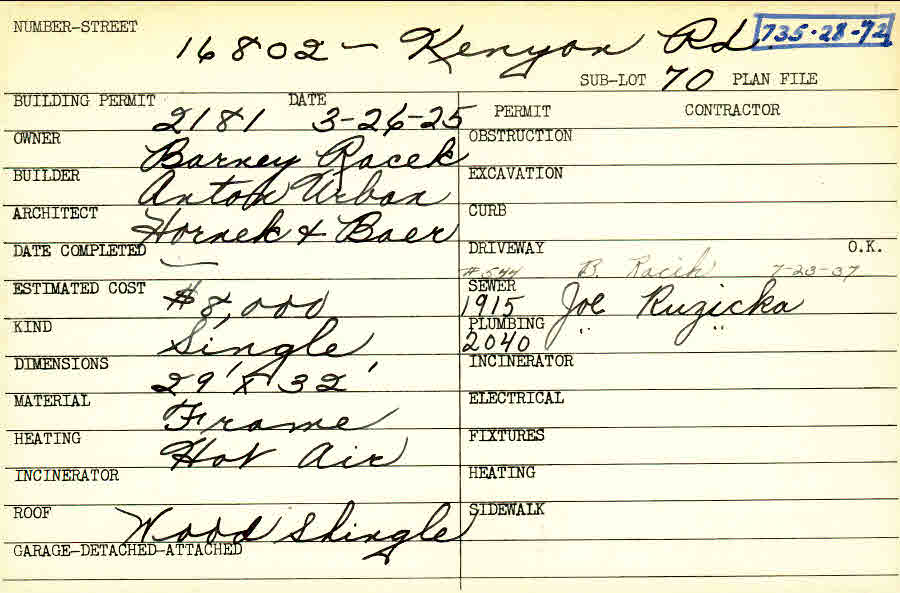 NUMBER-STREET
16802 - Kenyon Rd. 735-28-72
SUB-LOT 70 PLAN FILE
BUILDING PERMIT 2181 DATE 3-26-25
OWNER Barney Racek
BUILDER Anton Urban
ARCHITECT Hornek & Baer
DATE COMPLETED —
ESTIMATED COST $8,000
KIND Single
DIMENSIONS 29' x 32'
MATERIAL Frame
HEATING Hot Air
INCINERATOR
ROOF Wood Shingle
GARAGE-DETACHED-ATTACHED
PERMIT CONTRACTOR
OBSTRUCTION
EXCAVATION
CURB
DRIVEWAY O.K.
#544 B. Racik 7-23-37
SEWER
1915 Joe Ruzicka
PLUMBING
2040 " "
INCINERATOR
ELECTRICAL
FIXTURES
HEATING
SIDEWALK